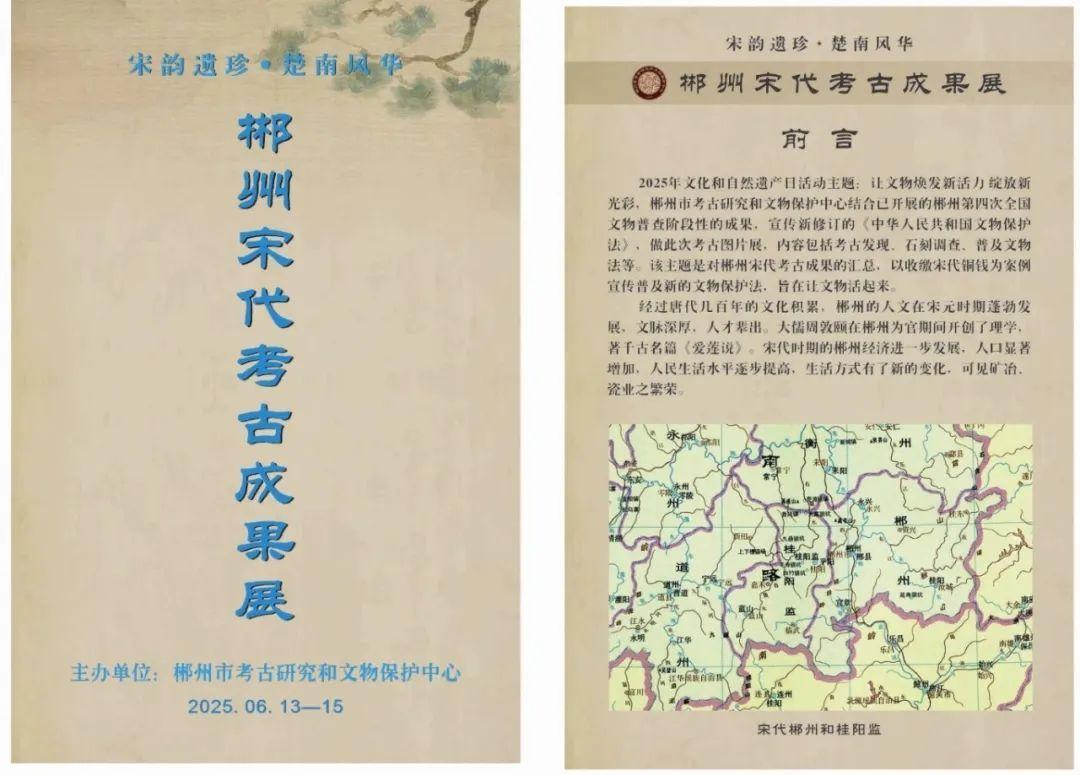 宋韵遗珍·楚南风华
郴州宋代考古成果展
主办单位：郴州市考古研究和文物保护中心
2025.06.13—15
宋韵遗珍·楚南风华
郴州宋代考古成果展
前言
2025年文化和自然遗产日活动主题：让文物焕发新活力 绽放新
光彩，郴州市考古研究和文物保护中心结合已开展的郴州第四次全国
文物普查阶段性的成果，宣传新修订的《中华人民共和国文物保护
法》，做此次考古图片展，内容包括考古发现、石刻调查、普及文物
法等。该主题是对郴州宋代考古成果的汇总，以收缴宋代铜钱为案例
宣传普及新的文物保护法，旨在让文物活起来。
经过唐代几百年的文化积累，郴州的人文在宋元时期蓬勃发
展，文脉深厚，人才辈出。大儒周敦颐在郴州为官期间开创了理学，
著千古名篇《爱莲说》。宋代时期的郴州经济进一步发展，人口显著
增加，人民生活水平逐步提高，生活方式有了新的变化，可见矿冶、
瓷业之繁荣。
永
州
衡
州
南
路
道
州
桂
阳
监
郴
州
常宁
耒阳
永兴
资兴
桂东
郴县
桂阳
汝城
宜章
临武
蓝山
宁远
道县
江华
江永
永明
江华瑶族自治县
连县
连州
乐昌
仁化
始兴
南雄
宋代郴州和桂阳监